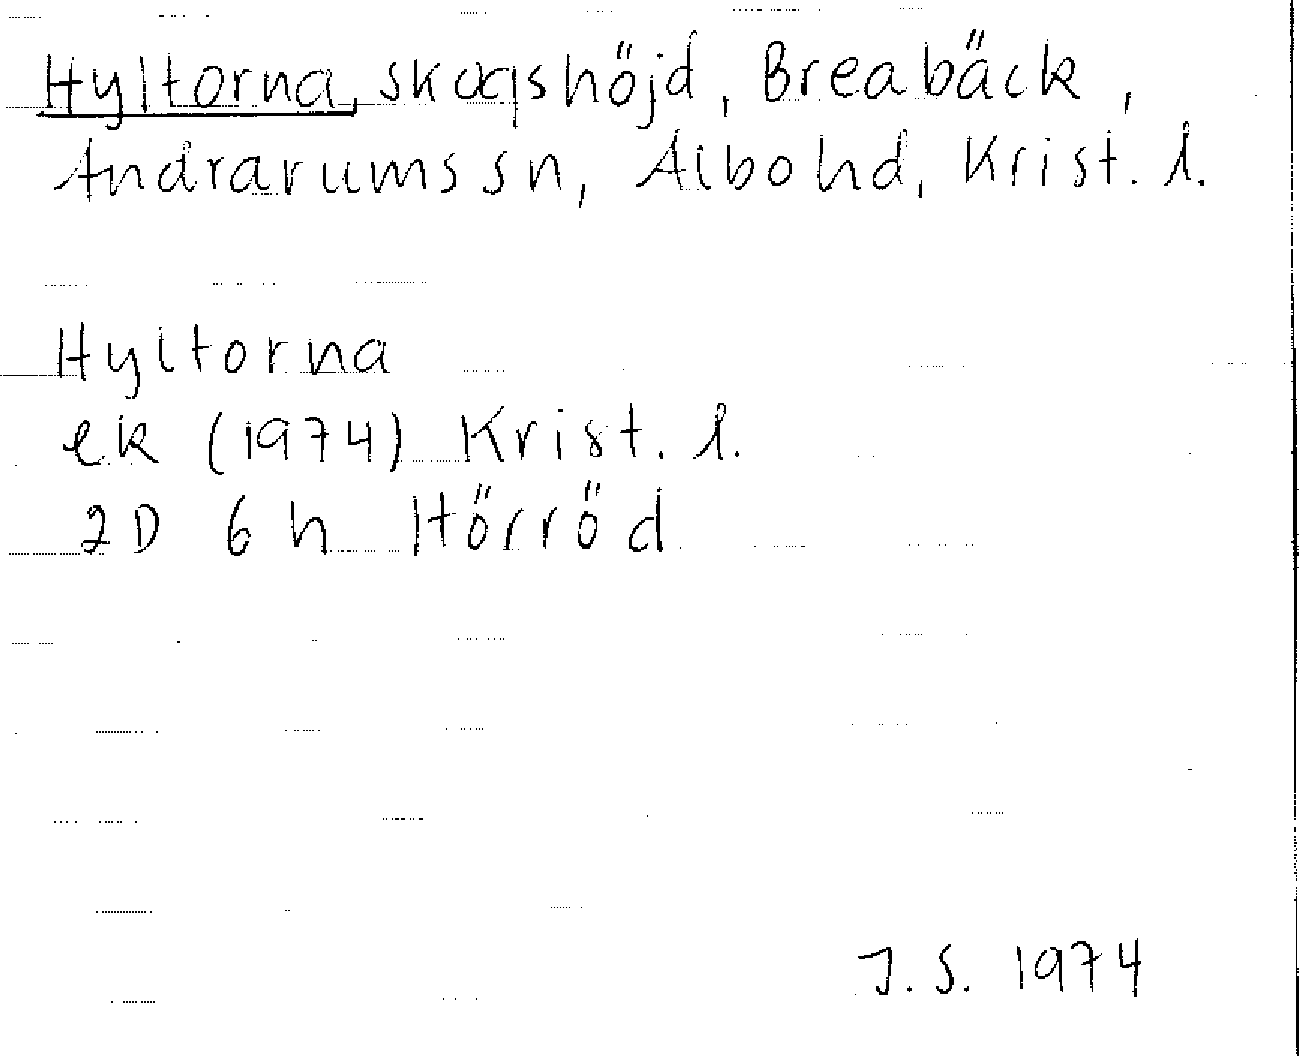 Hyltorna, skogshöjd, Breabäck,
Andrarums sn, Albo hd, Krist. l.
Hyltorna
ek (1974) Krist. l.
2D 6h Hörröd
J.S. 1974